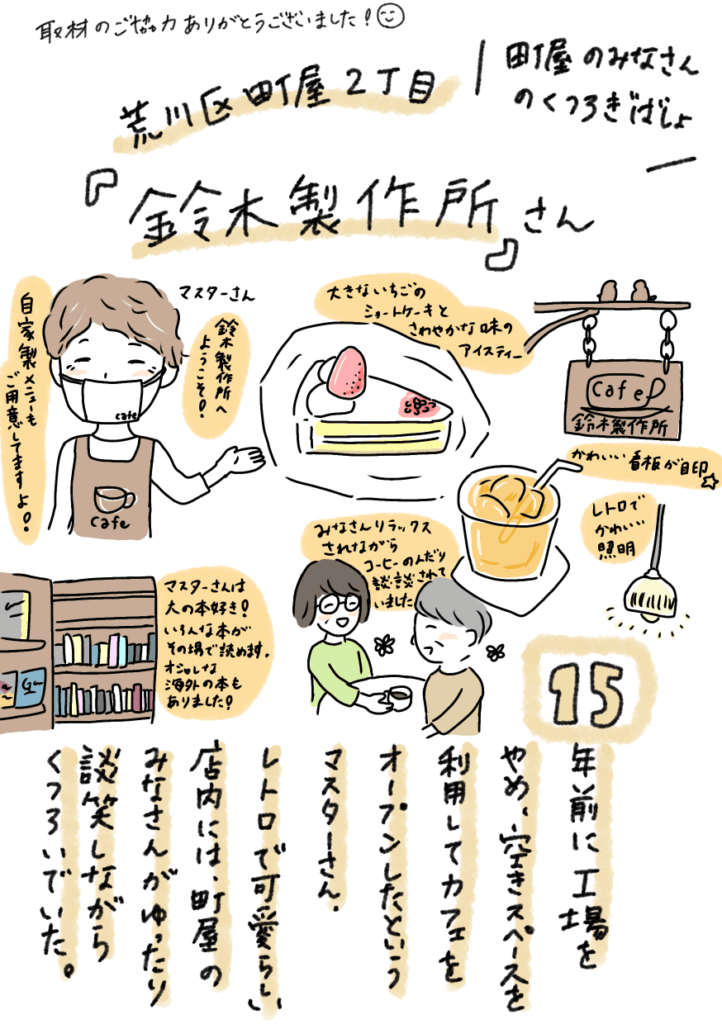 取材のご協力ありがとうございました!
荒川区町屋2丁目
町屋のみなさん
のくつろぎばしょ
『鈴木製作所』さん
マスターさん
鈴木製作所へ
ようこそ!
自家製メニューも
ご用意してますよ!
cafe
cafe
大きないちごの
ショートケーキと
さわやかな味の
アイスティー
Cafe
鈴木製作所
かわいい看板が目印
レトロで
かわいい
照明
みなさんリラックス
されながら
コーヒーのんだり
談談されて
いました
マスターさんは
大の本好き!
いろんな本が
その場で読めます。
オシャレな
海外の本も
ありました!
15
年前に工場を
やめ、空きスペースを
利用してカフェを
オープンしたという
マスターさん.
レトロで可愛らしい
店内には、町屋の
みなさんがゆったり
談笑しながら
くつろいでいた。